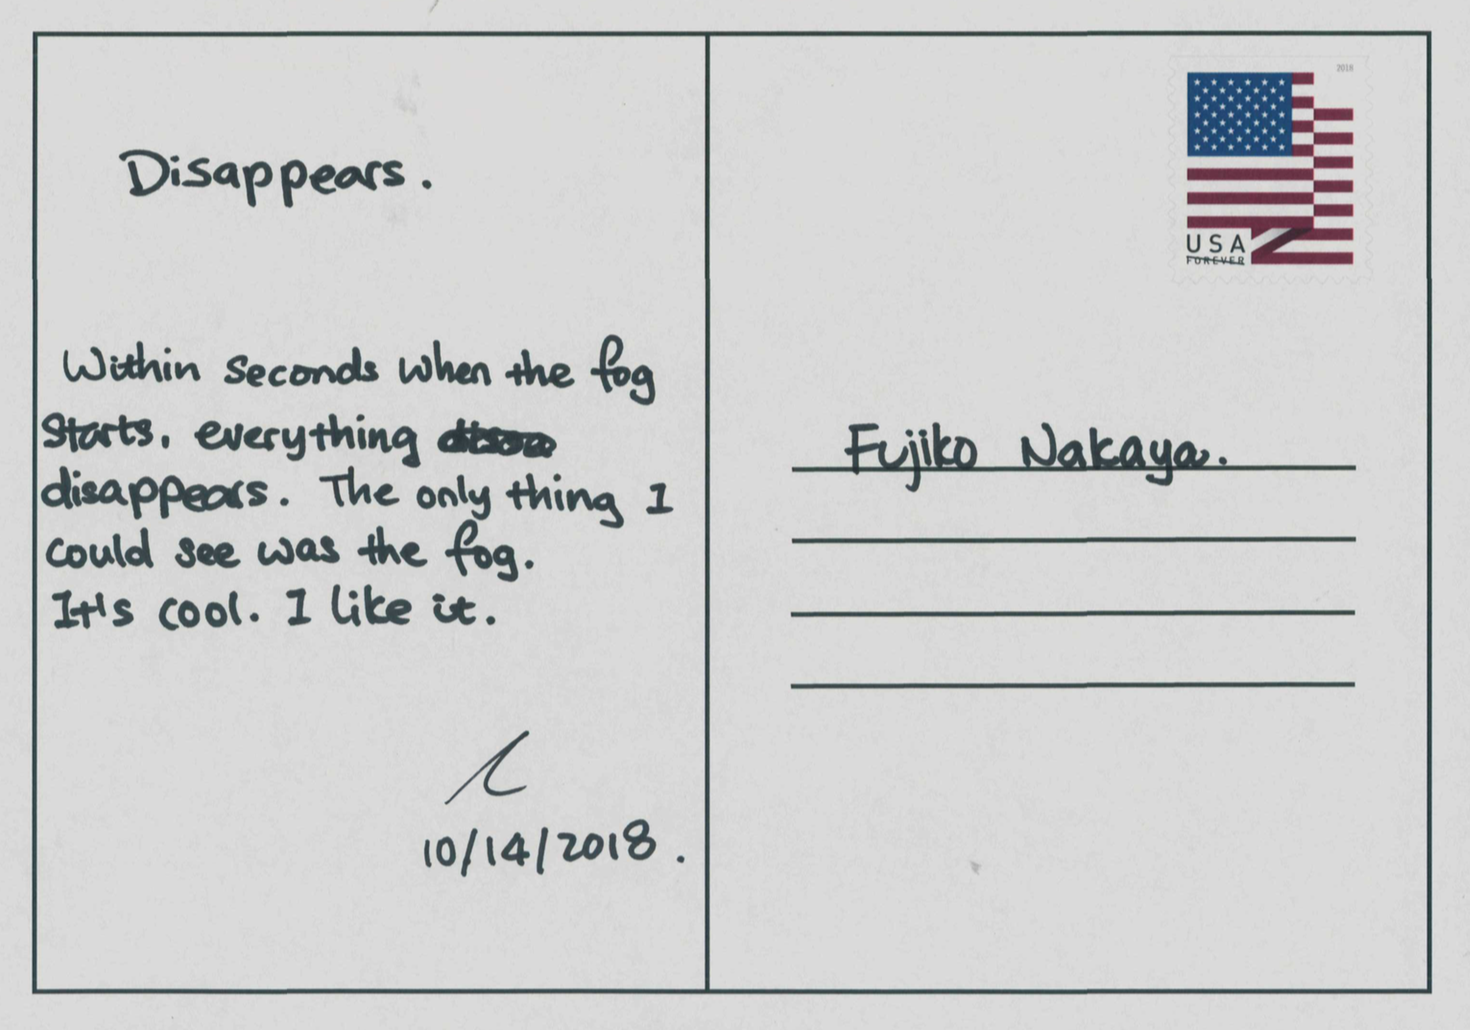 Disappears.
Within seconds when the fog
starts, everything
disappears. The only thing I
could see was the fog.
It's cool. I like it.
10/14/2018.
2018
USA
FOREVER
Fujiko Nakaya.